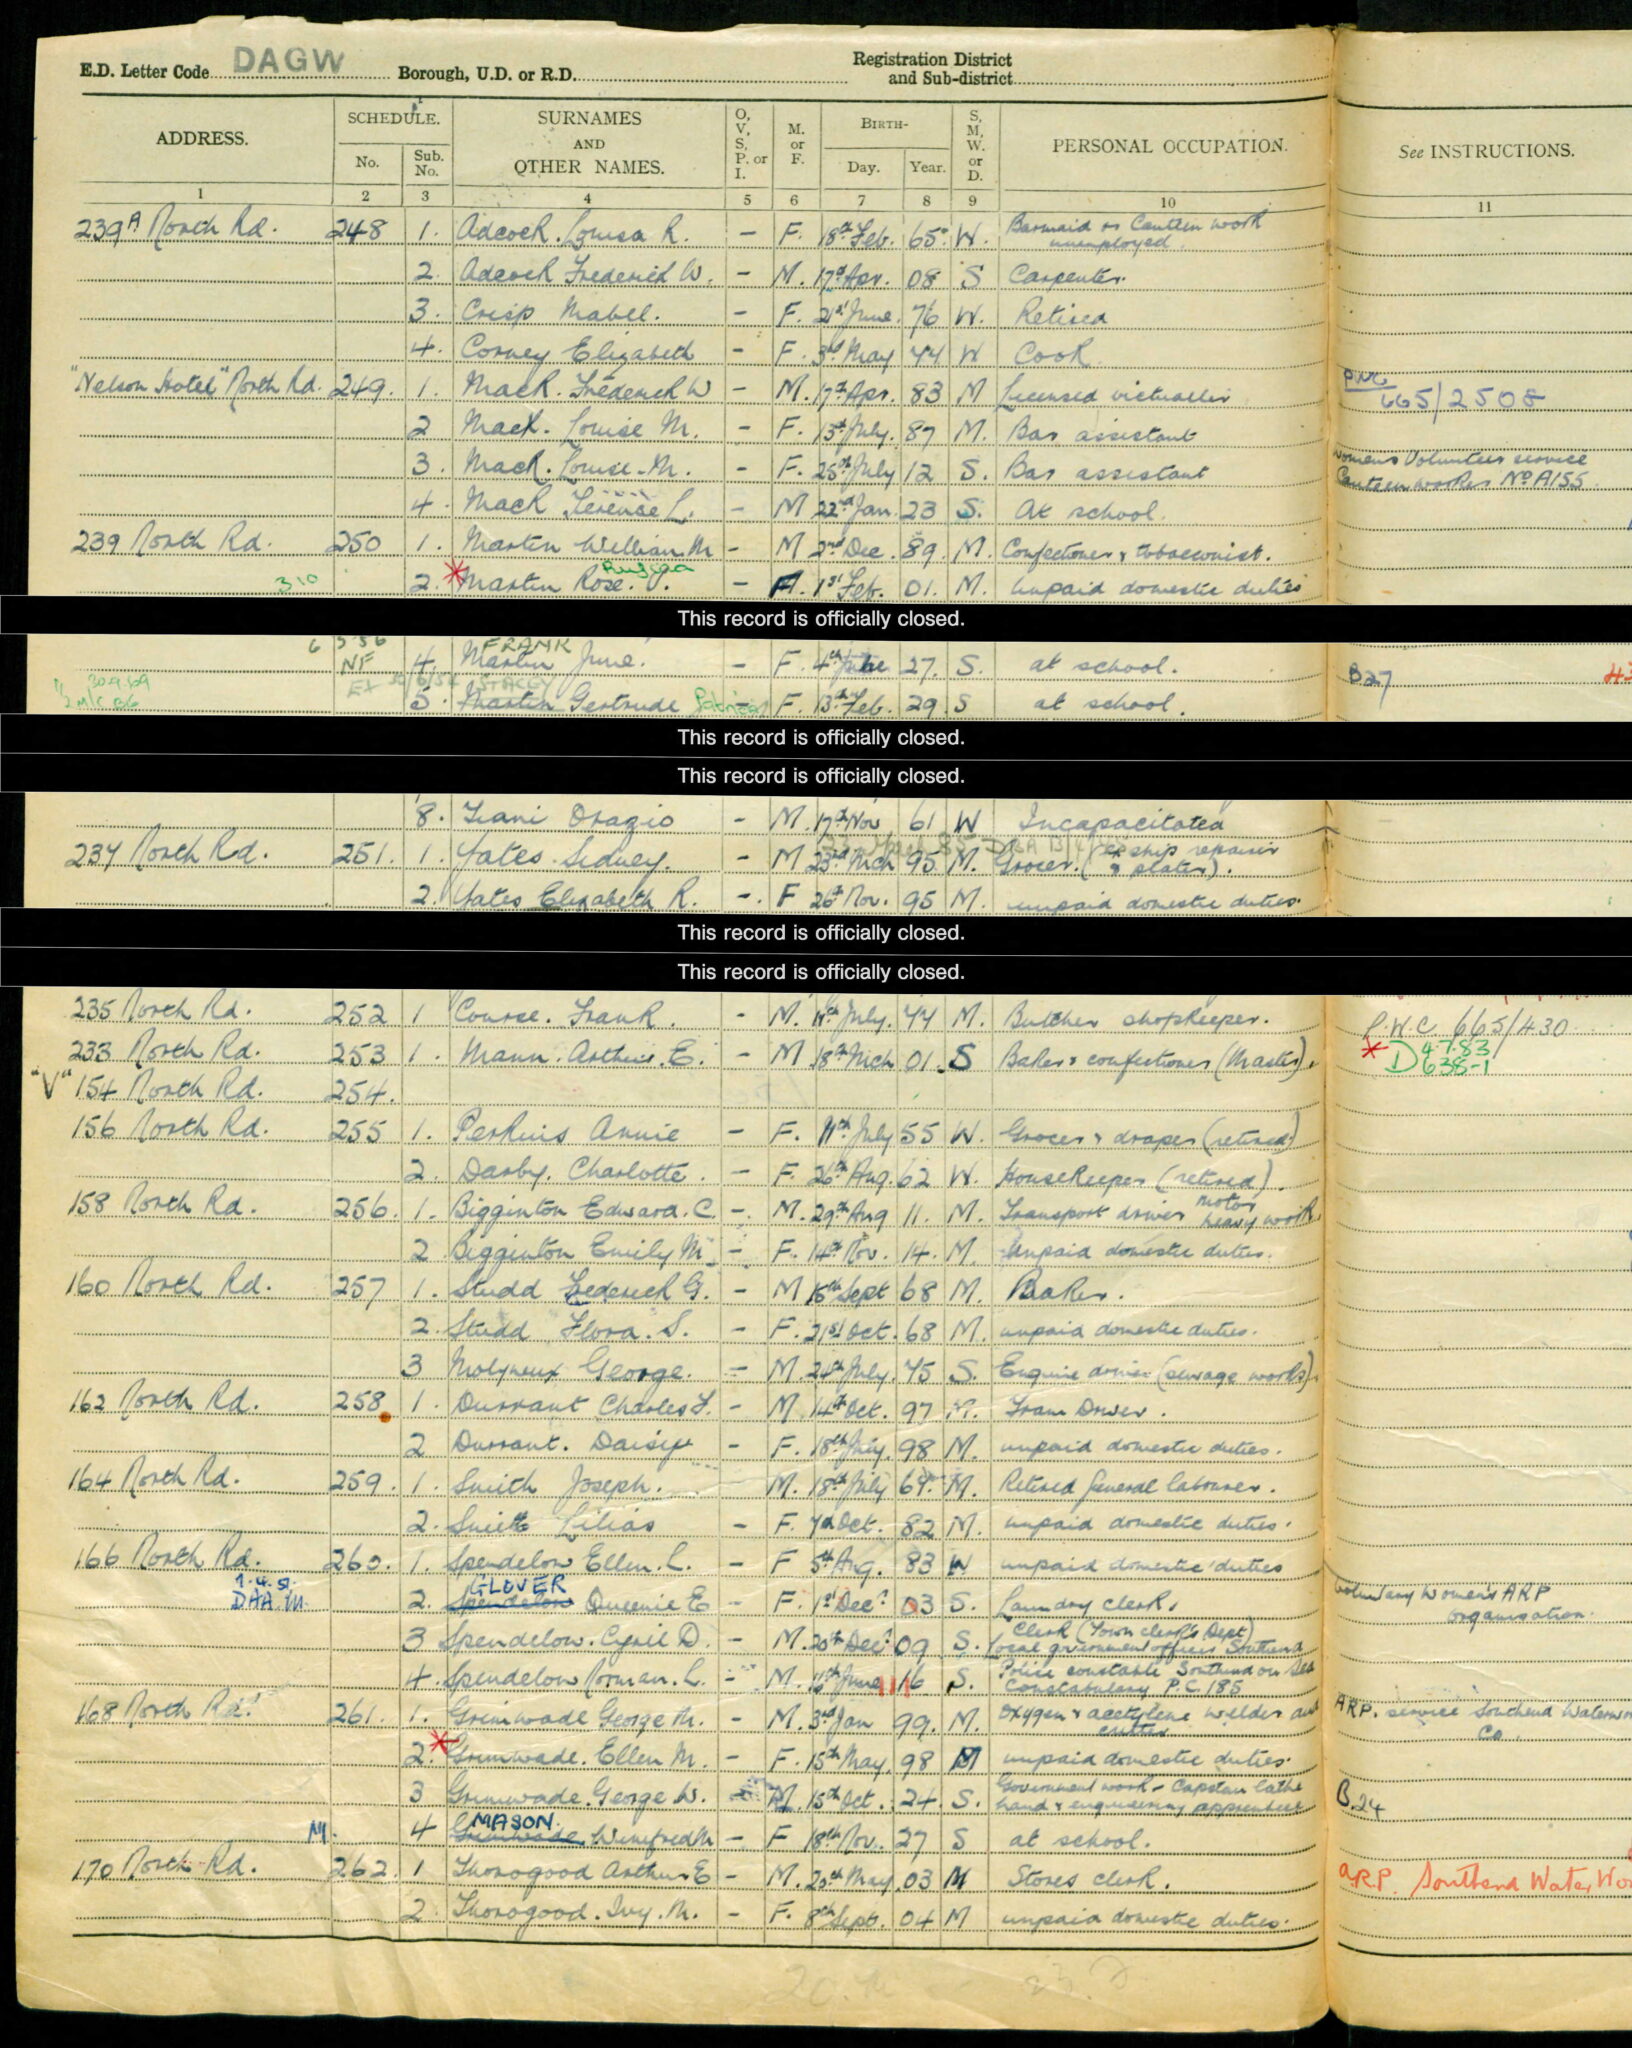 E.D. Letter Code DAGW Borough, U.D. or R.D. Registration District and Sub-district
ADDRESS. SCHEDULE. No. Sub. No. SURNAMES AND OTHER NAMES. O, V, S, P. or I. M. or F. BIRTH- Day. Year. S, M, W. or D. PERSONAL OCCUPATION. See INSTRUCTIONS.
1 2 3 4 5 6 7 8 9 10 11
239A North Rd. 248 1. Adcock. Louisa R. - F. 18th Feb. 65 W. Barmaid or Canteen work unemployed.
2. Adcock Frederick W. - M. 17th Apr. 08 S Carpenter.
3. Crisp Mabel. - F. 21st June. 76 W. Retired
4. Corney Elizabeth - F. 3rd May 74 W Cook
"Nelson Hotel" North Rd. 249. 1. Mack. Frederick W - M. 17th Apr. 83 M Licensed victualler 665/2508
2 Mack. Louise M. - F. 13th July. 87 M. Bar assistant
3. Mack. Louise. M. - F. 25th July 12 S. Bar assistant Womens Volunteer service Canteen worker No A155
4. Mack Terence L. - M 22nd Jan 23 S. At school.
239 North Rd. 250 1. Martin William. M - M 2nd Dec. 89. M. Confectioner & tobacconist.
310 2. * Martin Rose. J. - F. 1st Feb. 01. M. unpaid domestic duties
This record is officially closed.
FRANK
NF 4. Martin June. - F. 4th June 27. S. at school. B27
5. Martin Gertrude Patricia - F. 13th Feb. 29 S at school.
This record is officially closed.
This record is officially closed.
8. Orazio - M. 17th Nov 61 W Incapacitated
237 North Rd. 251. 1. Yates. Sidney. - M 23rd Mch 95 M. Grocer. (ex ship repairer & plater).
2. Yates Elizabeth R. - F 26th Nov. 95 M. unpaid domestic duties.
This record is officially closed.
This record is officially closed.
235 North Rd. 252 1 Course. Frank. - M. July. 77 M. Butcher shopkeeper. P.W.C 665/430
233 North Rd. 253 1. Mann. Arthur. E. - M 18th Mch 01. S Baker & confectioner (Master). * D 4.7.83 638-1
"V" 154 North Rd. 254.
156 North Rd. 255 1. Perkins Annie - F. 11th July 55 W. Grocer & draper (retired)
2. Darby. Charlotte. - F. 26th Aug. 62 W. Housekeeper (retired).
158 North Rd. 256. 1. Bigginton Edward. C. - M. 29th Aug 11. M. Transport driver motor heavy work
2 Bigginton Emily M - F. 14th Nov. 14. M. Unpaid domestic duties.
160 North Rd. 257 1. Studd Frederick G. - M 18th Sept 68 M. Baker.
2. Studd Flora. S. - F. 21st Oct. 68 M. unpaid domestic duties.
3 Molyneux George. - M. 24th July. 75 S. Engine driver (sewage works).
162 North Rd. 258 1. Durrant Charles F. - M 14th Oct. 97 M. Tram Driver.
2 Durrant. Daisy - F. 18th July. 98 M. unpaid domestic duties.
164 North Rd. 259. 1. Smith Joseph. M. 18th July 67. M. Retired General labourer.
2. Smith Lilias - F. 7th Oct. 82 M. unpaid domestic duties.
166 North Rd. 260. 1. Spendelow Ellen. L. - F 5th Aug. 83 W unpaid domestic duties
GLOVER
DAA. M. 2. Spendelow Queenie E - F. 1st Dec. 03 S. Laundry clerk. Voluntary Women's ARP organisation.
3 Spendelow. Cyril D. - M. 20th Dec. 09 S. Clerk (Town clerk's Dept) Local government officer Southend
4. Spendelow Norman. L. - M. June 16 S. Police constable Southend on Sea Constabulary P.C. 185
168 North Rd. 261. 1. Grimwade George M. - M. 3rd Jan 99. M. Oxygen & acetylene welder and cutter ARP. service Southend Waterwor Co.
2. * Grimwade. Ellen M. - F. 15th May. 98 M unpaid domestic duties.
3 Grimwade. George W. - M. 15th Oct. 24. S. Government work - Capstan lathe hand & engineering apprentice B.24
MASON
M. 4 Grimwade Winifred M - F 18th Nov. 27 S at school.
170 North Rd. 262. 1 Thorogood Arthur E - M. 20th May. 03 M Stores clerk. A.R.P. Southend Water Wo
2. Thorogood. Ivy. M. - F. 8th Sept. 04 M unpaid domestic duties.